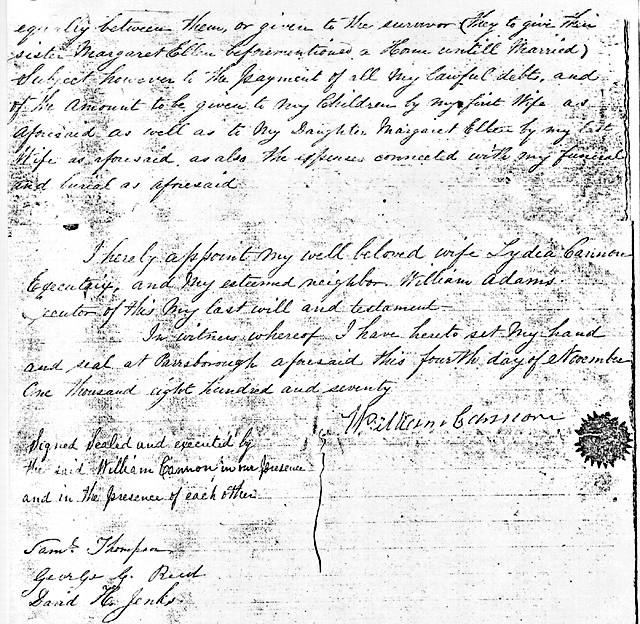 equally between them, or given to the survivor (they to give their
sister Margaret Ellen beforementioned a Home untill Married)
Subject however to the payment of all my lawful debts, and
of the amount to be given to my Children by my first Wife as
aforesaid as well as to My Daughter Margaret Ellen by my last
Wife as aforesaid, as also the expenses connected with my funeral
and burial as aforesaid
I hereby appoint my well beloved wife Lydia Cannon
Executrix, and My esteemed neighbor William Adams
Executor of this My last will and testament
In witness whereof I have hereto set My hand
and seal at Parrsborough aforesaid this fourth day of November
One thousand eight hundred and seventy
William Cannon
Signed Sealed and executed by
the said William Cannon in our presence
and in the presence of each other
Saml. Thompson
George G. Reid
David H. Jenks